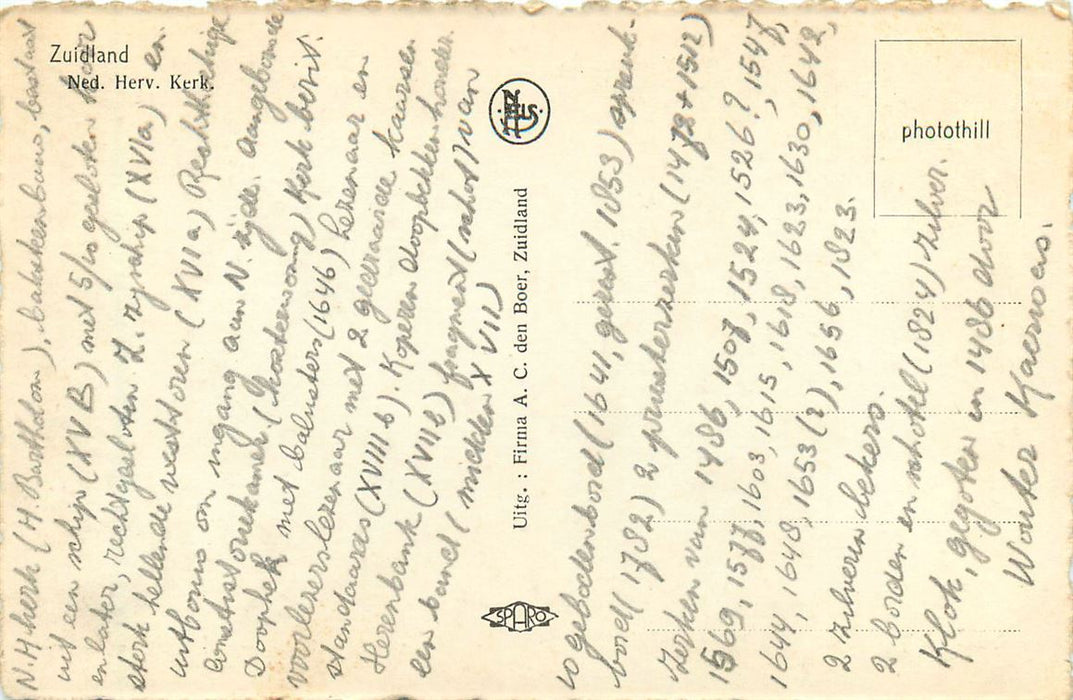 Zuidland
Ned. Herv. Kerk.
N.H kerk (H. Barthölom), baksteenbouw, bestaat
uit een schip (XV B) met 5/10 gesloten koor
en later, rechtgesloten Z. zijschip (XVI a) en
sterk hellende westtoren (XVI a) Rechthoekige
uitbouw om ingang aan N. zijde. aangebouwde
Consistoriekamer (Kosterswoning) Kerk bevat.
Doophek met balusters (1646) Lezenaar en
voorlezerslezenaar met 2 gegraveerde kaarsen
standaards (XVIII b). Koperen doopbekkenhouder.
Herenbank (XVII b) fragment (schot) van
een bank (midden XVII)
Uitg. : Firma A. C. den Boer, Zuidland
SPARO
photothill
10 gebodenbord (1641, gerest. 1853)
bord (1782) 2 priesterzerken (1478 + 1512)
Zerken van 1486, 1507, 1524, 1526?, 1547,
1569, 1577, 1603, 1615, 1618, 1623, 1630, 1642,
1644, 1648, 1653 (2), 1656, 1823.
2 zilveren bekers.
2 borden en schotel (1824) zilver.
Klok, gegoten in 1486 door
Wouter Kaerwas.